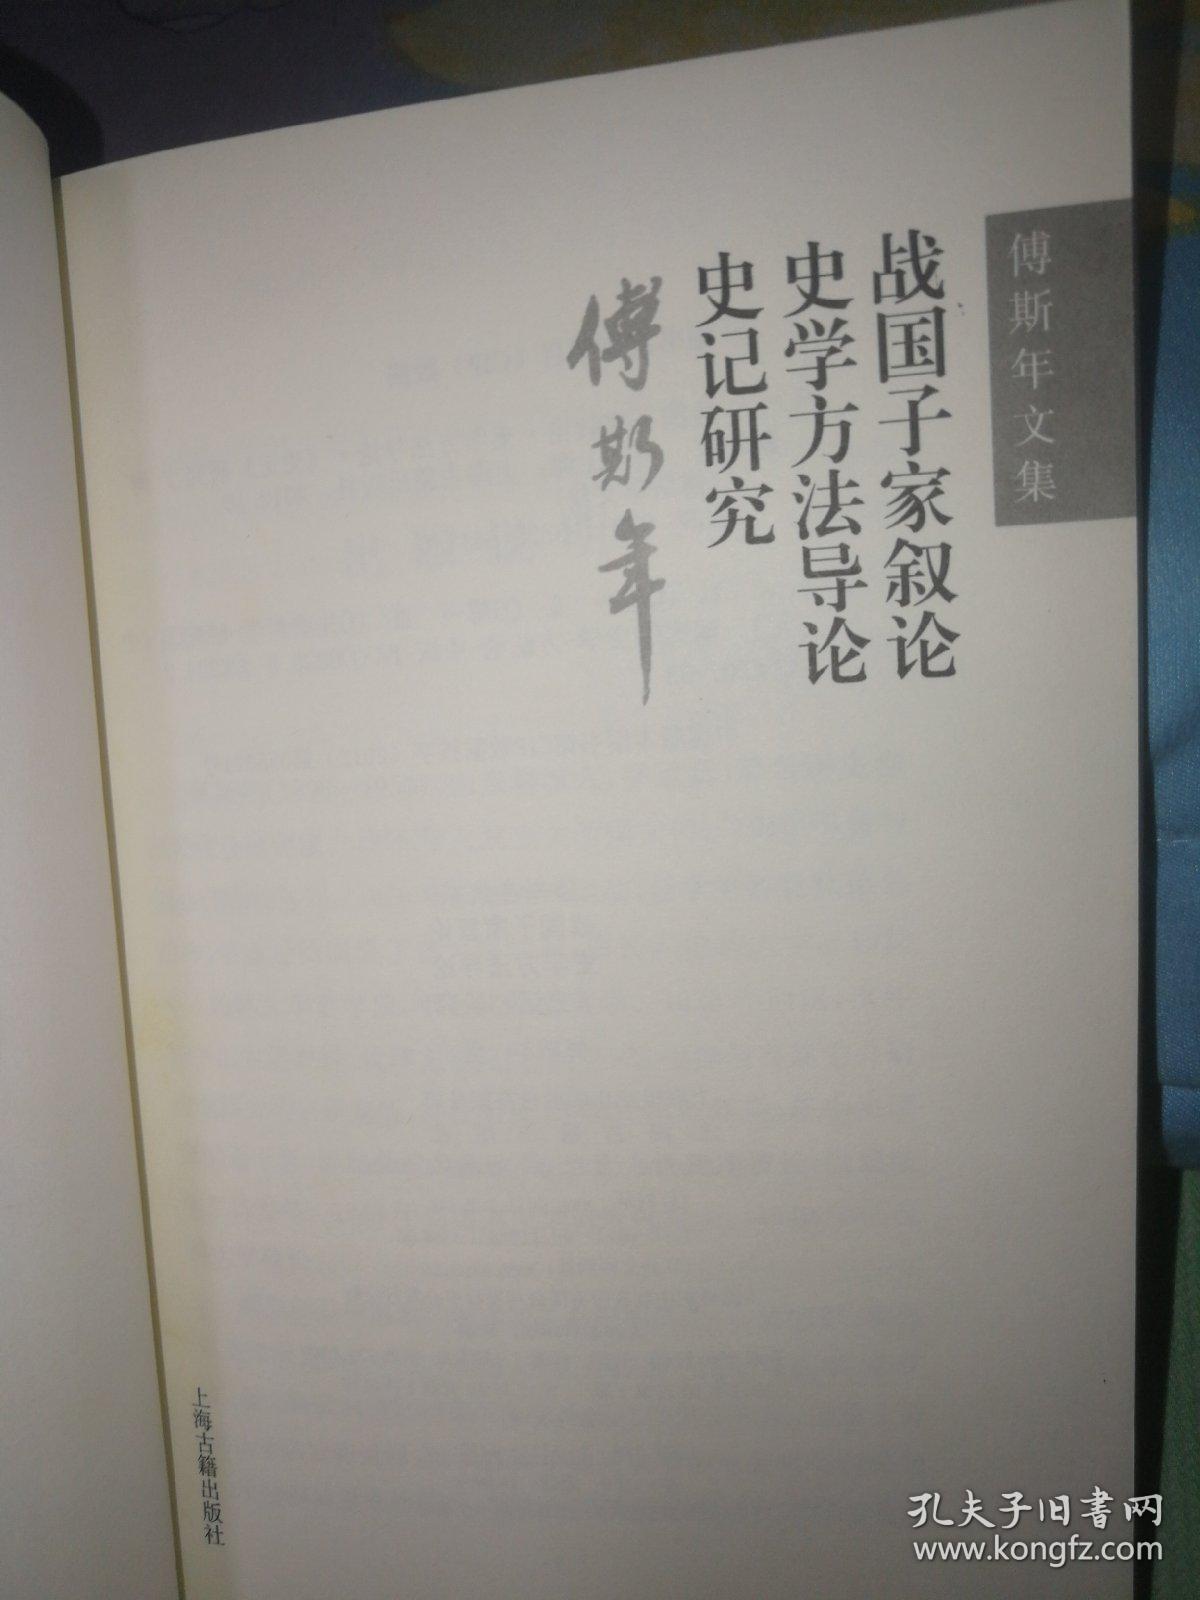 傅斯年文集
战国子家叙论
史学方法导论
史记研究
傅斯年
上海古籍出版社
孔夫子旧书网
www.kongfz.com